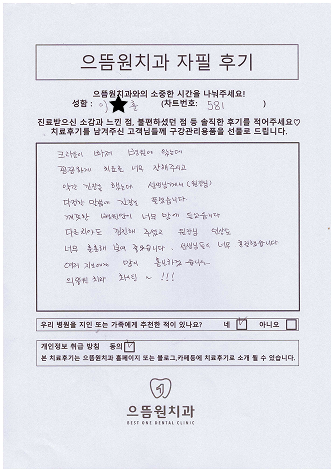 으뜸원치과 자필 후기
으뜸원치과와의 소중한 시간을 나눠주세요!
성함 : 이 훈 (차트번호: 581 )
진료받으신 소감과 느낀 점, 불편하셨던 점 등 솔직한 후기를 적어주세요♡
치료후기를 남겨주신 고객님들께 구강관리용품을 선물로 드립니다.
크라운이 빠져 병원에 왔는데
꼼꼼하게 치료를 너무 잘해주시고
약간 긴장을 했는데 선생님께서 (원장님)
다정한 말씀에 긴장을 풀었습니다
깨끗한 병원이 너무 맘에 드는 습니다
너무 훌륭해 보여 좋았습니다. 선생님들도 너무 친절하십니다
많이 홍보하겠습니다
으뜸원 치과 화이팅 ~ !!!
우리 병원을 지인 또는 가족에게 추천한 적이 있나요? 네 ☑ 아니오 ☐
개인정보 취급 방침 동의 ☑
본 치료후기는 으뜸원치과 홈페이지 또는 블로그,카페등에 치료후기로 소개 될 수 있습니다.
으뜸원치과
BEST ONE DENTAL CLINIC